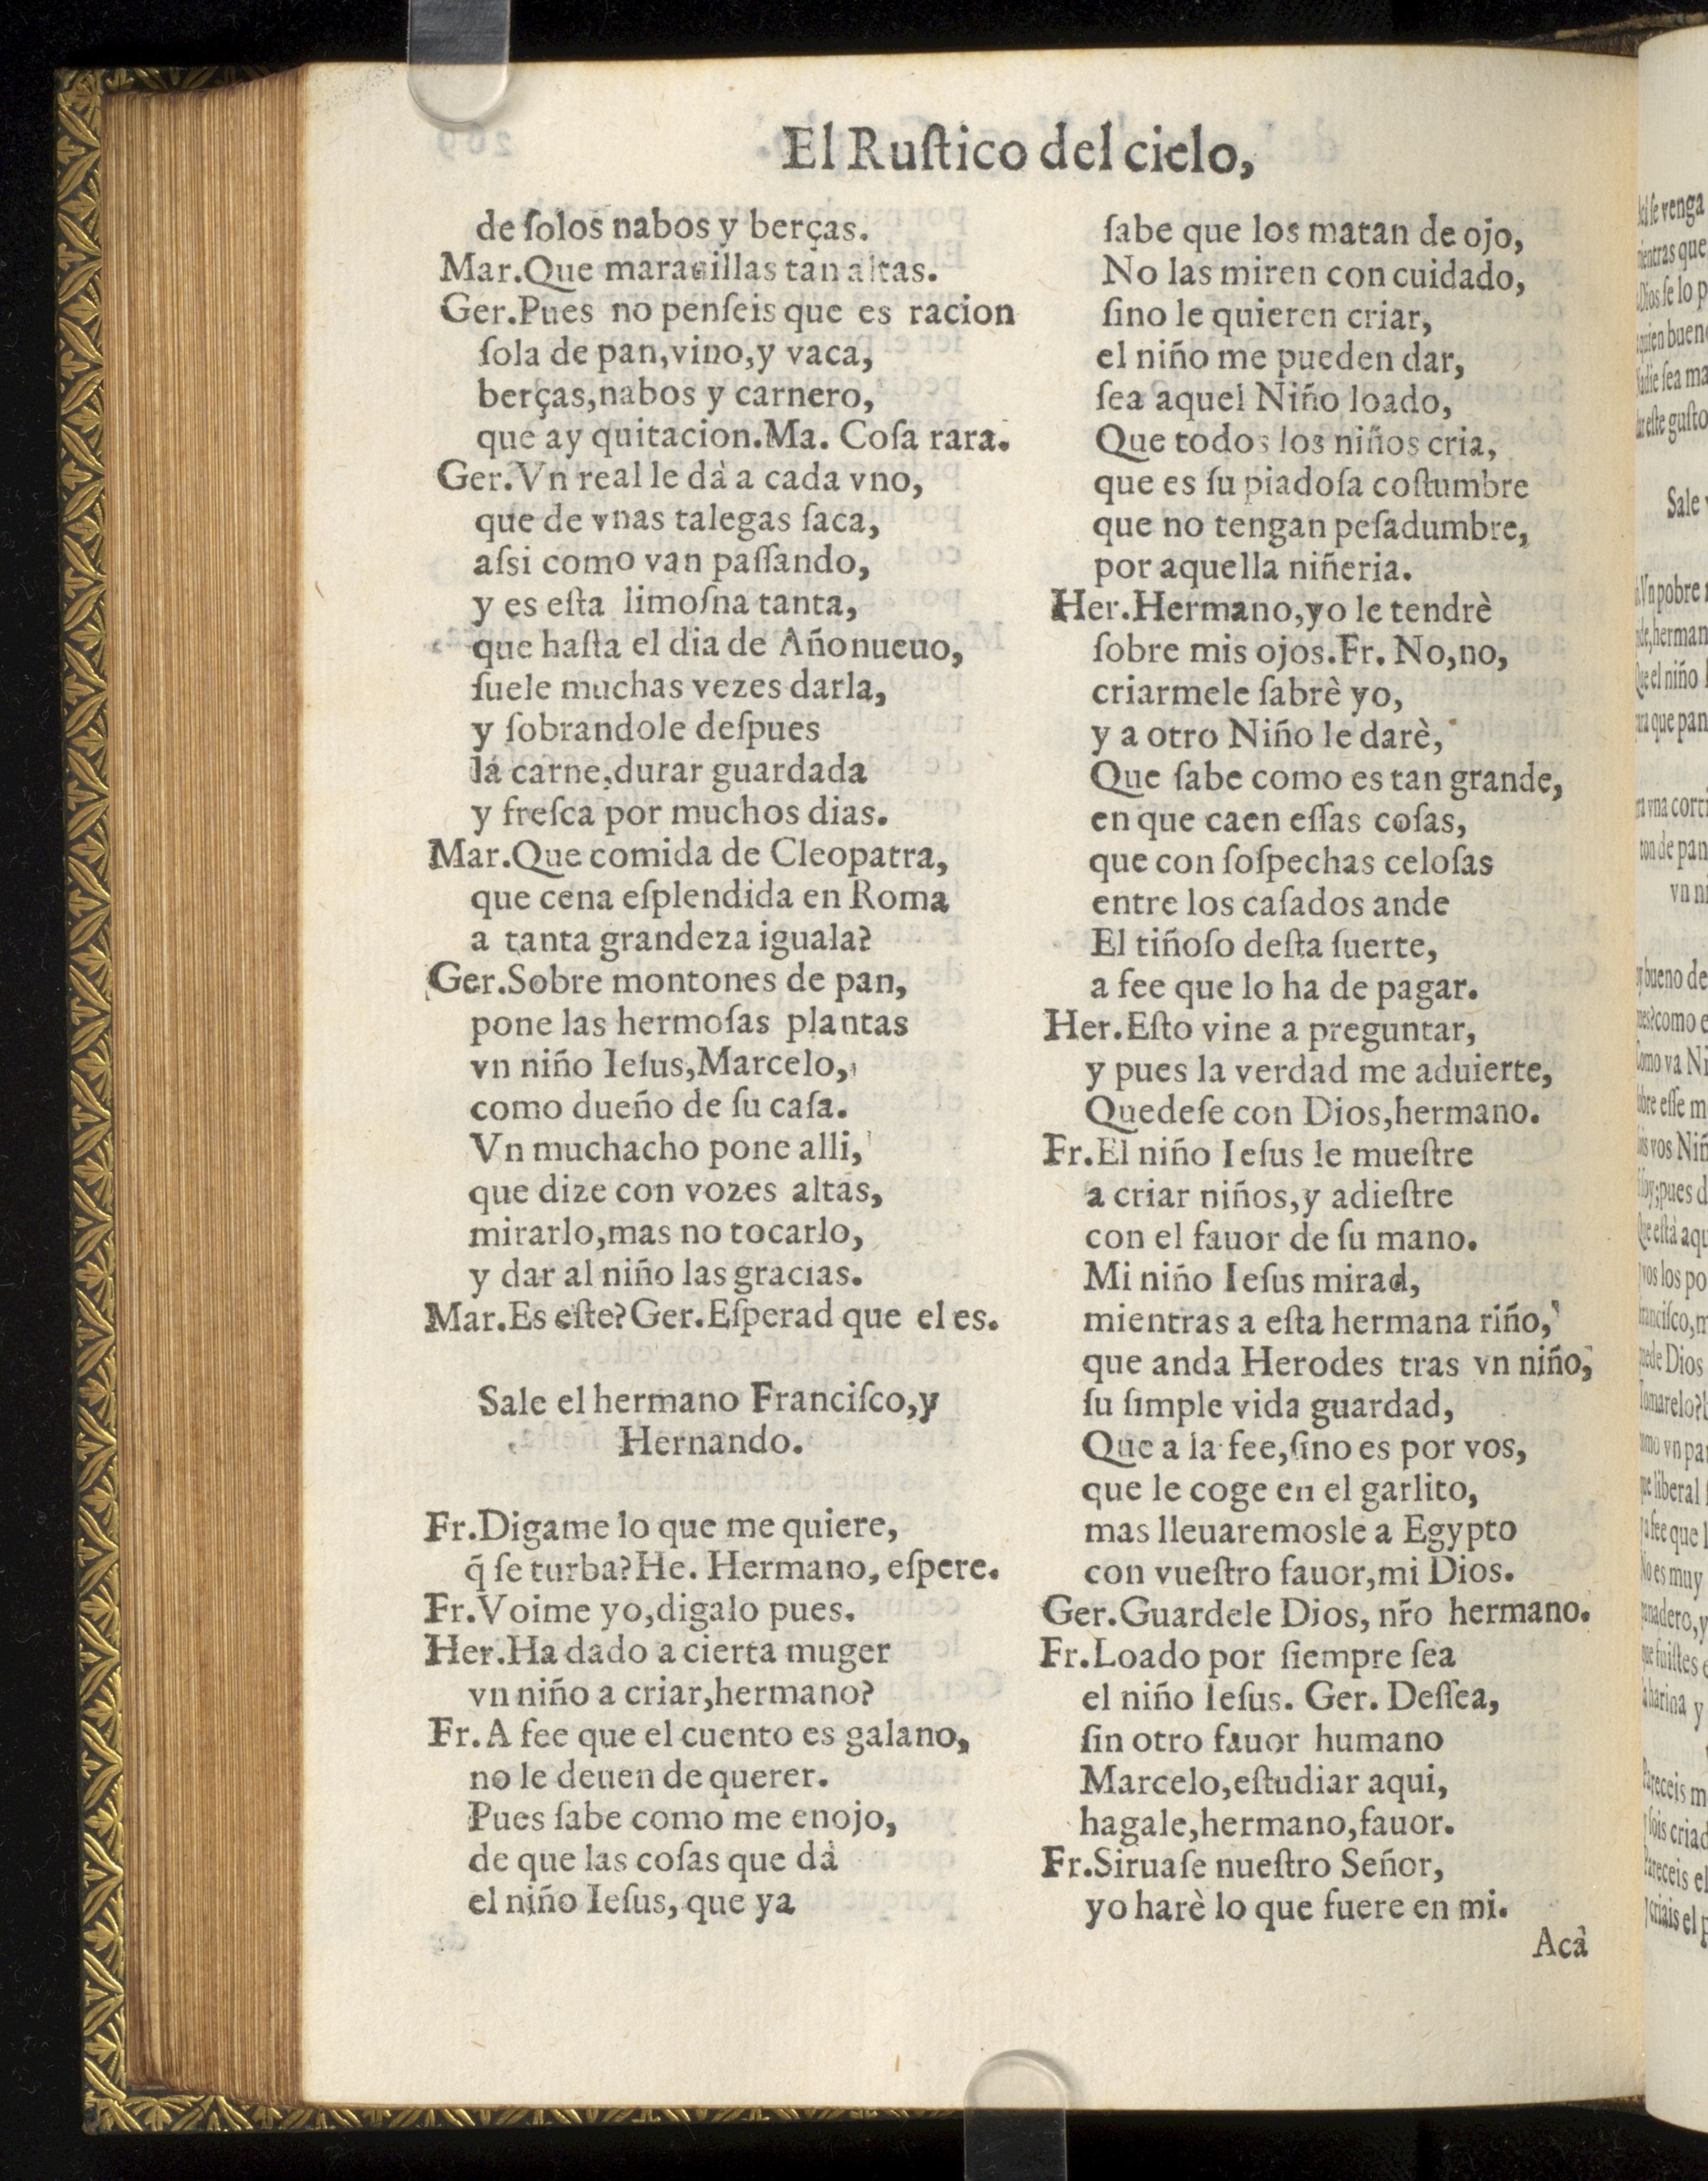 El Ruſtico del cielo,
de ſolos nabos y berças.
Mar.Que marauillas tan altas.
Ger.Pues no penſeis que es racion
ſola de pan,vino,y vaca,
berças,nabos y carnero,
que ay quitacion.Ma. Coſa rara.
Ger.Vn real le dà a cada vno,
que de vnas talegas ſaca,
aſsi como van paſſando,
y es eſta limoſna tanta,
que haſta el dia de Añonueuo,
ſuele muchas vezes darla,
y ſobrandole deſpues
la carne,durar guardada
y freſca por muchos dias.
Mar.Que comida de Cleopatra,
que cena eſplendida en Roma
a tanta grandeza iguala?
Ger.Sobre montones de pan,
pone las hermoſas plantas
vn niño Ieſus,Marcelo,
como dueño de ſu caſa.
Vn muchacho pone alli,
que dize con vozes altas,
mirarlo,mas no tocarlo,
y dar al niño las gracias.
Mar.Es eſte?Ger.Eſperad que el es.
Sale el hermano Franciſco,y
Hernando.
Fr.Digame lo que me quiere,
q̃ ſe turba?He. Hermano, eſpere.
Fr.Voime yo,digalo pues.
Her.Ha dado a cierta muger
vn niño a criar,hermano?
Fr.A fee que el cuento es galano,
no le deuen de querer.
Pues ſabe como me enojo,
de que las coſas que dà
el niño Ieſus, que ya
ſabe que los matan de ojo,
No las miren con cuidado,
ſino le quieren criar,
el niño me pueden dar,
ſea aquel Niño loado,
Que todos los niños cria,
que es ſu piadoſa coſtumbre
que no tengan peſadumbre,
por aquella niñeria.
Her.Hermano,yo le tendrè
ſobre mis ojos.Fr. No,no,
criarmele ſabrè yo,
y a otro Niño le darè,
Que ſabe como es tan grande,
en que caen eſſas coſas,
que con ſoſpechas celoſas
entre los caſados ande
El tiñoſo deſta ſuerte,
a fee que lo ha de pagar.
Her.Eſto vine a preguntar,
y pues la verdad me aduierte,
Quedeſe con Dios,hermano.
Fr.El niño Ieſus le mueſtre
a criar niños,y adieſtre
con el fauor de ſu mano.
Mi niño Ieſus mirad,
mientras a eſta hermana riño,
que anda Herodes tras vn niño,
ſu ſimple vida guardad,
Que a la fee,ſino es por vos,
que le coge en el garlito,
mas lleuaremosle a Egypto
con vueſtro fauor,mi Dios.
Ger.Guardele Dios, nr̃o hermano.
Fr.Loado por ſiempre ſea
el niño Ieſus. Ger. Deſſea,
ſin otro fauor humano
Marcelo,eſtudiar aqui,
hagale,hermano,fauor.
Fr.Siruaſe nueſtro Señor,
yo harè lo que fuere en mi.
Acà